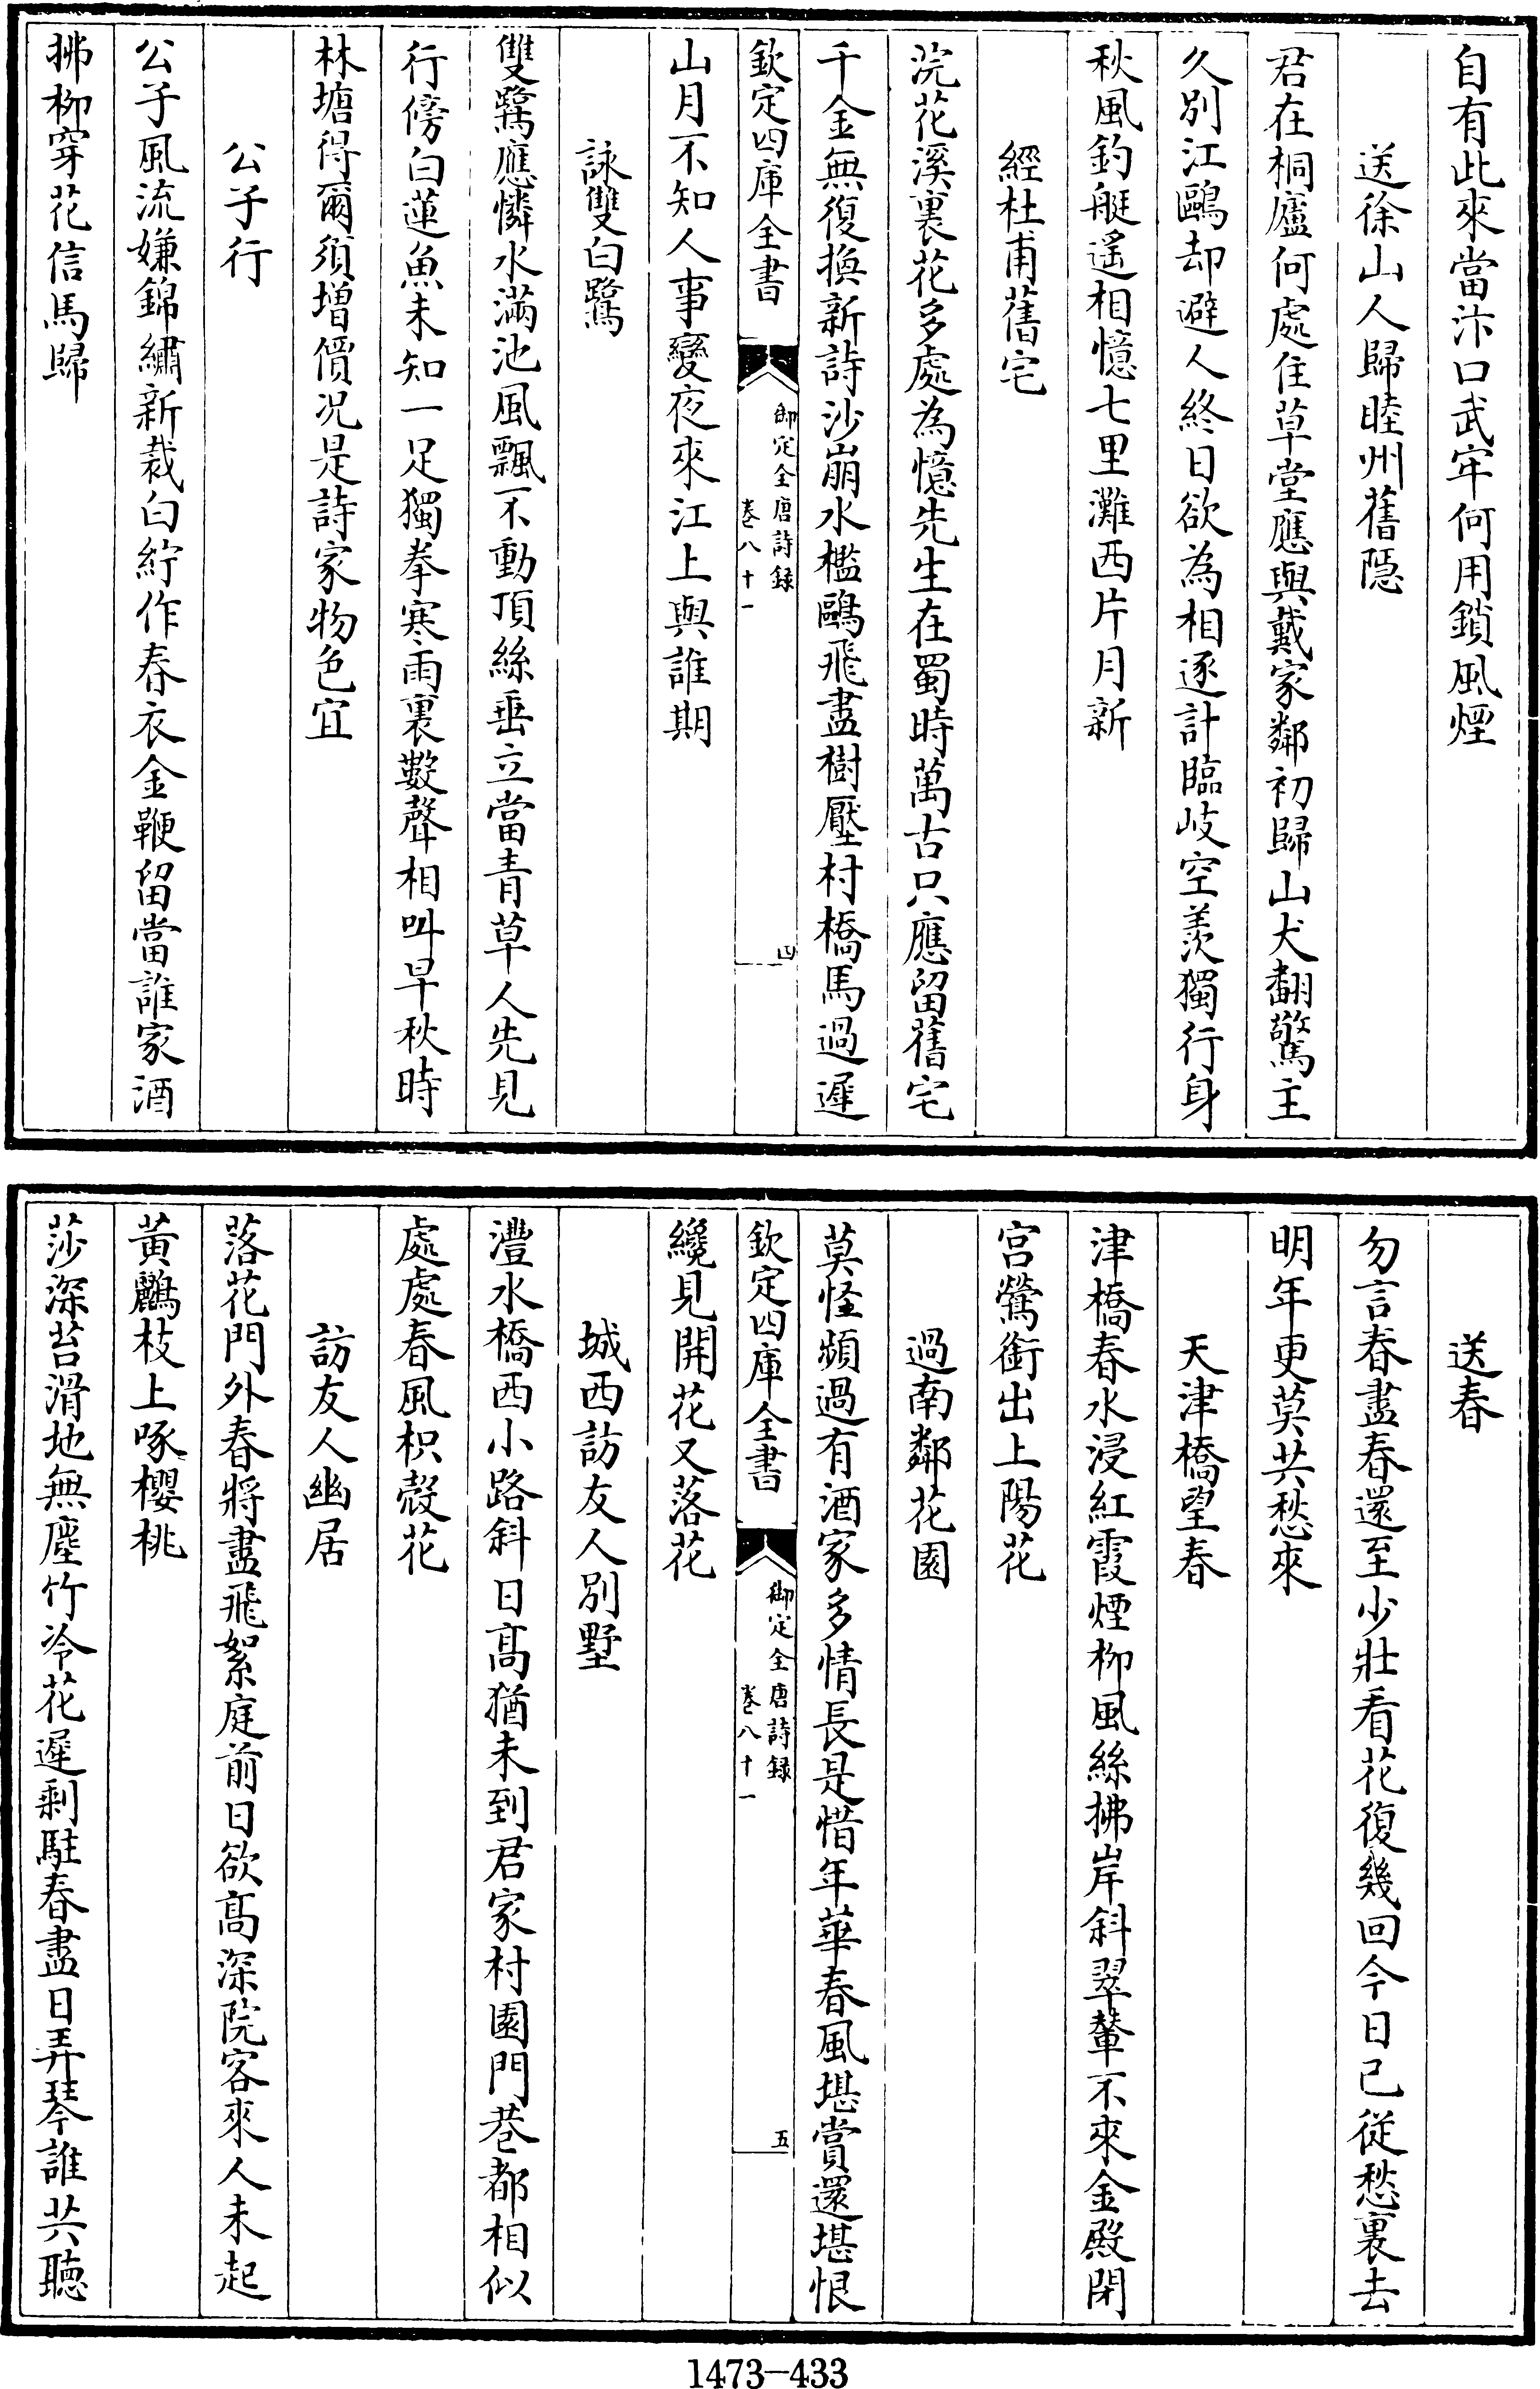 自有此來當汴口武牢何用鎖風煙
送徐山人歸睦州舊隱
君在桐廬何處住草堂應與戴家鄰初歸山犬翻驚主
久別江鷗却避人終日欲為相逐計臨岐空羨獨行身
秋風釣艇遙相憶七里灘西片月新
經杜甫舊宅
浣花溪裏花多處為憶先生在蜀時萬古只應留舊宅
千金無復換新詩沙崩水檻鷗飛盡樹壓村橋馬過遲
欽定四庫全書
御定全唐詩録
卷八十一
四
山月不知人事變夜來江上與誰期
詠雙白鷺
雙鷺應憐水滿池風飄不動頂絲垂立當青草人先見
行傍白蓮魚未知一足獨拳寒雨裏數聲相叫早秋時
林塘得爾須增價况是詩家物色宜
公子行
公子風流嫌錦繡新裁白紵作春衣金鞭留當誰家酒
拂柳穿花信馬歸
送春
勿言春盡春還至少壯看花復幾回今日已從愁裏去
明年更莫共愁來
天津橋望春
津橋春水浸紅霞煙柳風絲拂岸斜翠輦不來金殿閉
宮鶯銜出上陽花
過南鄰花園
莫怪頻過有酒家多情長是惜年華春風堪賞還堪恨
欽定四庫全書
御定全唐詩録
卷八十一
五
纔見開花又落花
城西訪友人別墅
灃水橋西小路斜日髙猶未到君家村園門巷都相似
處處春風枳殼花
訪友人幽居
落花門外春將盡飛絮庭前日欲髙深院客來人未起
黃鸝枝上啄櫻桃
莎深苔滑地無塵竹冷花遲剩駐春盡日弄琴誰共聽
1473-433